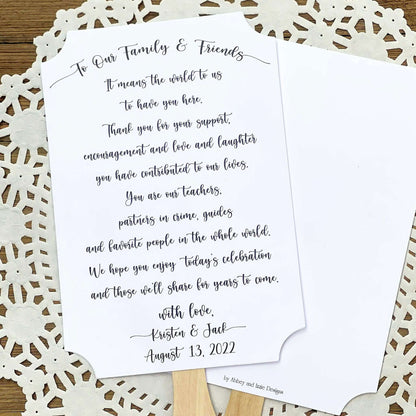 To Our Family & Friends
It means the world to us
to have you here.
Thank you for your support,
encouragement and love and laughter
you have contributed to our lives.
You are our teachers,
partners in crime, guides
and favorite people in the whole world.
We hope you enjoy today's celebration
and those we'll share for years to come.
with love,
Kristen & Jack
August 13, 2022
by Abbey and Izzie Designs